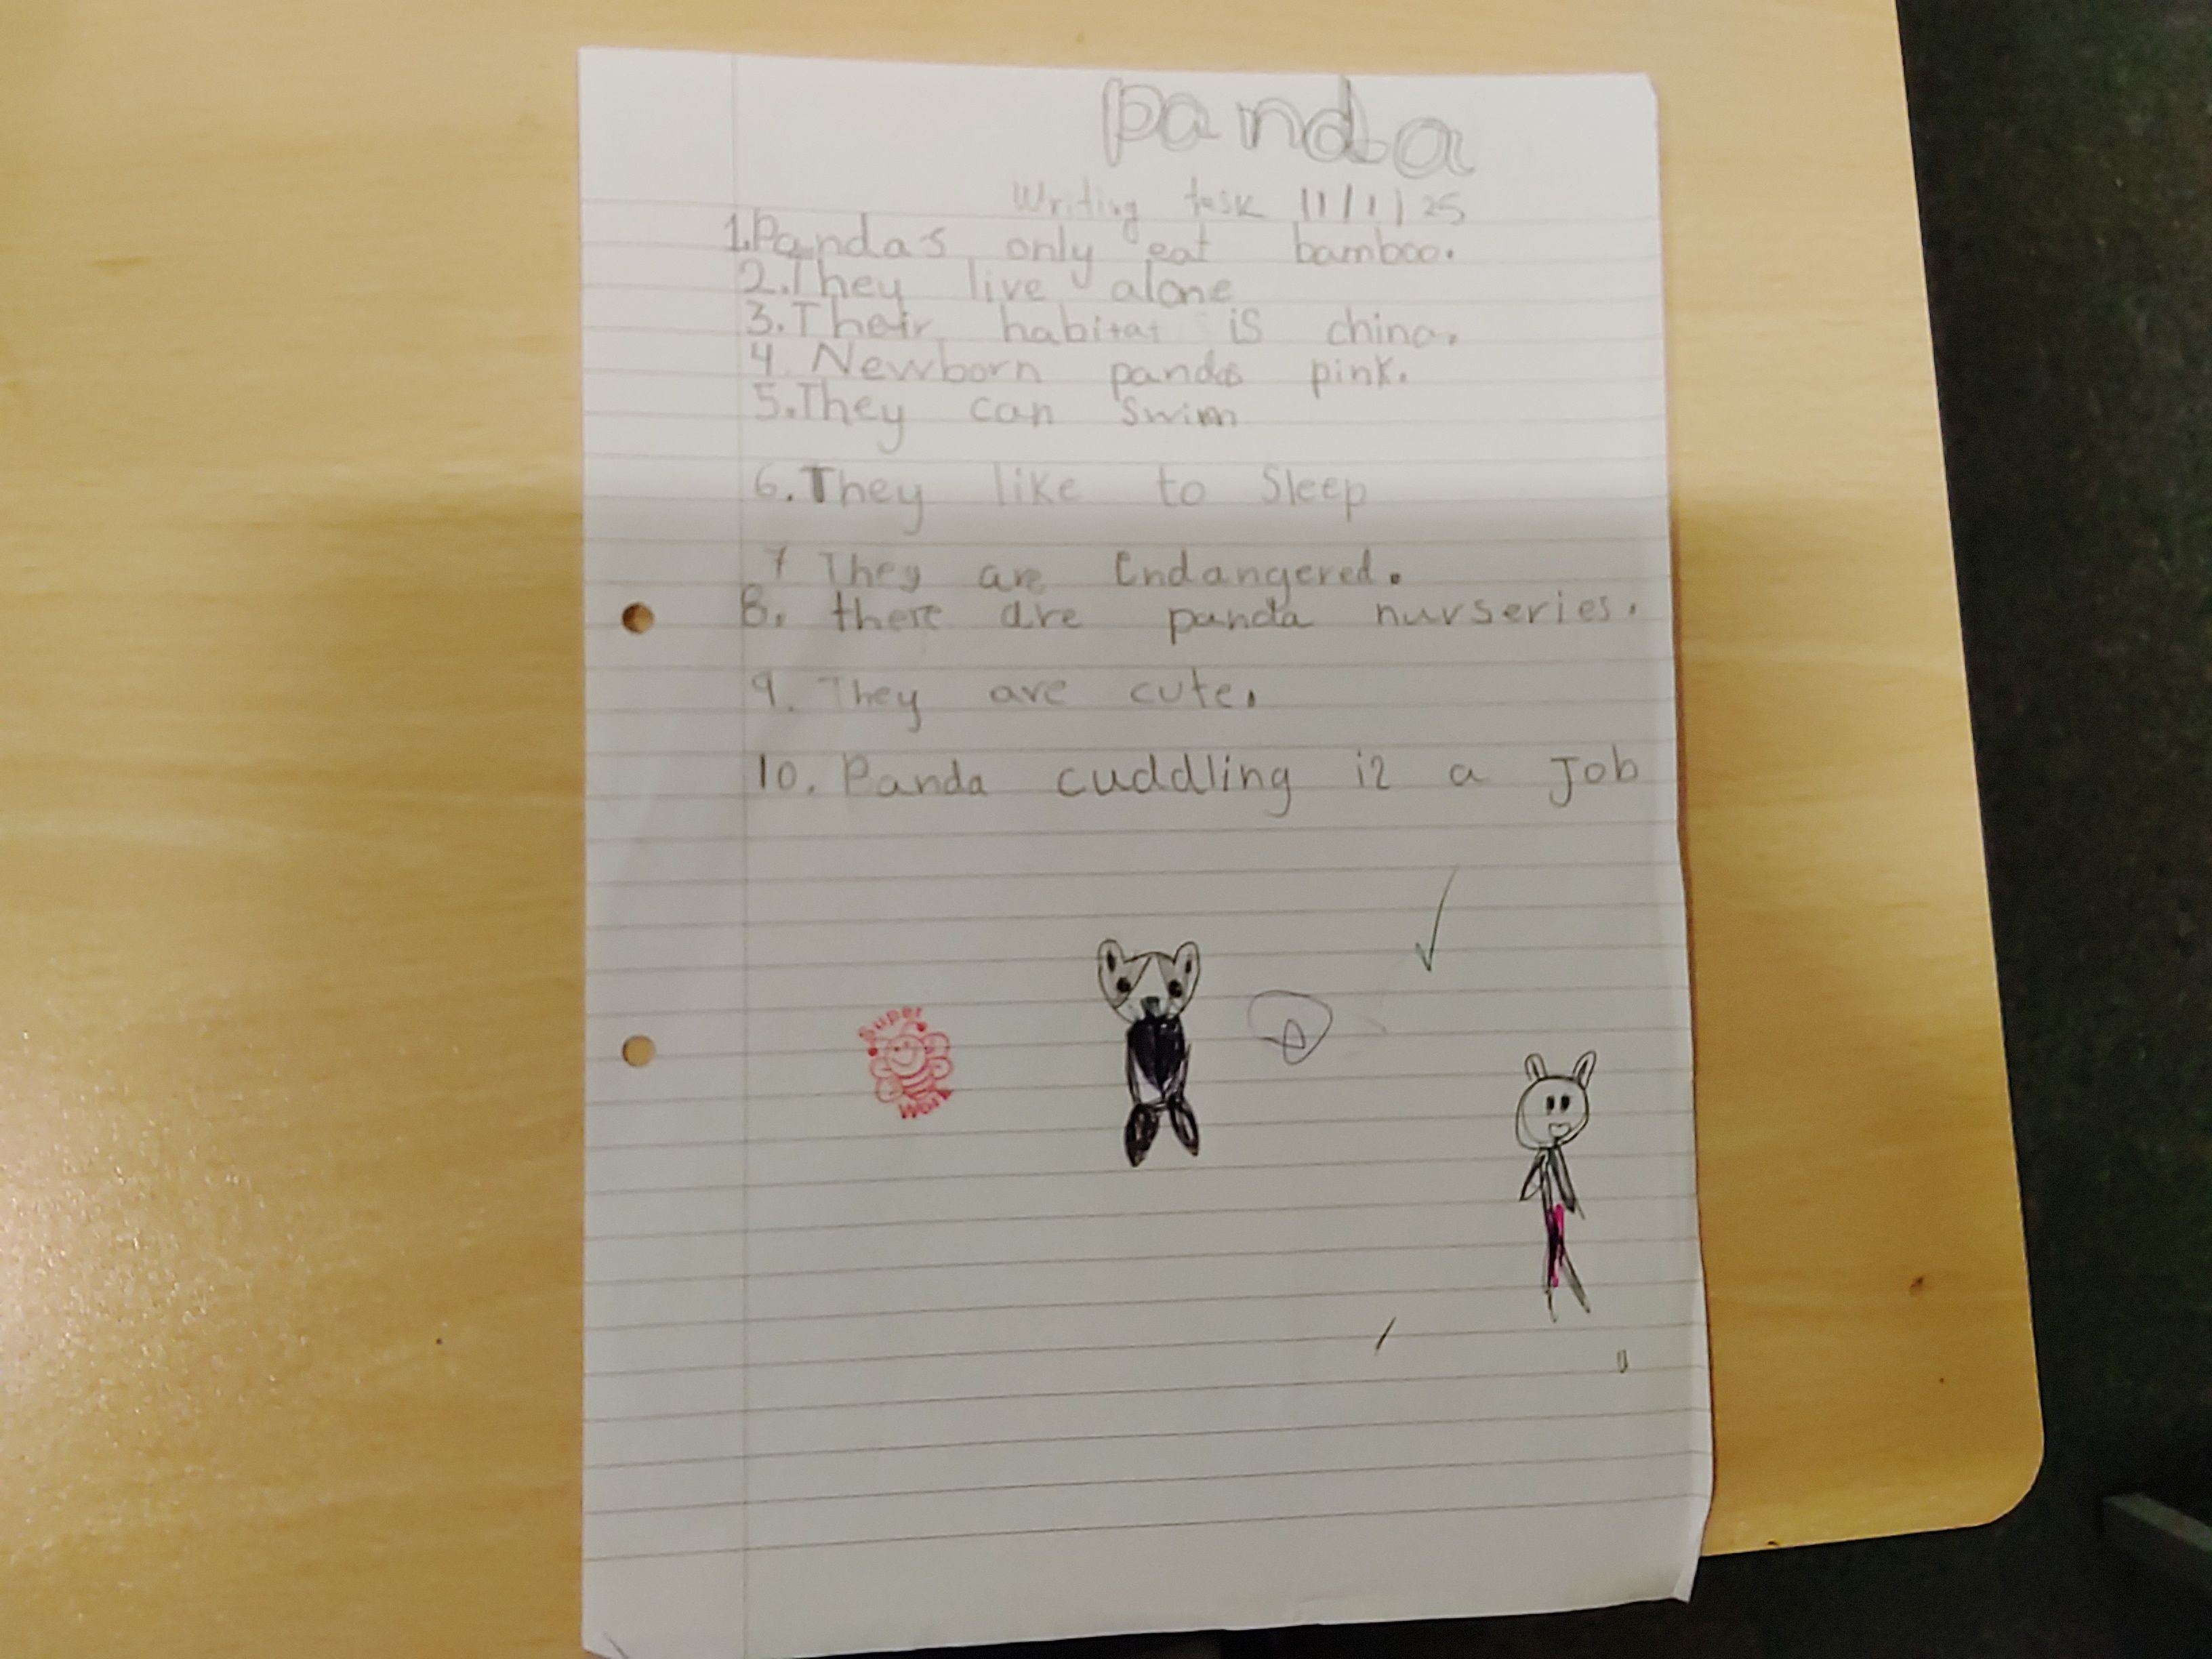 panda
Writing task 11/1/25
1.Pandas only eat bamboo.
2.They live alone
3.Their habitat is china.
4. Newborn pandas pink.
5.They can swim
6.They like to Sleep
7 They are Endangered.
8. there are panda nurseries.
9. They are cute.
10. Panda cuddling is a Job
Super
Work